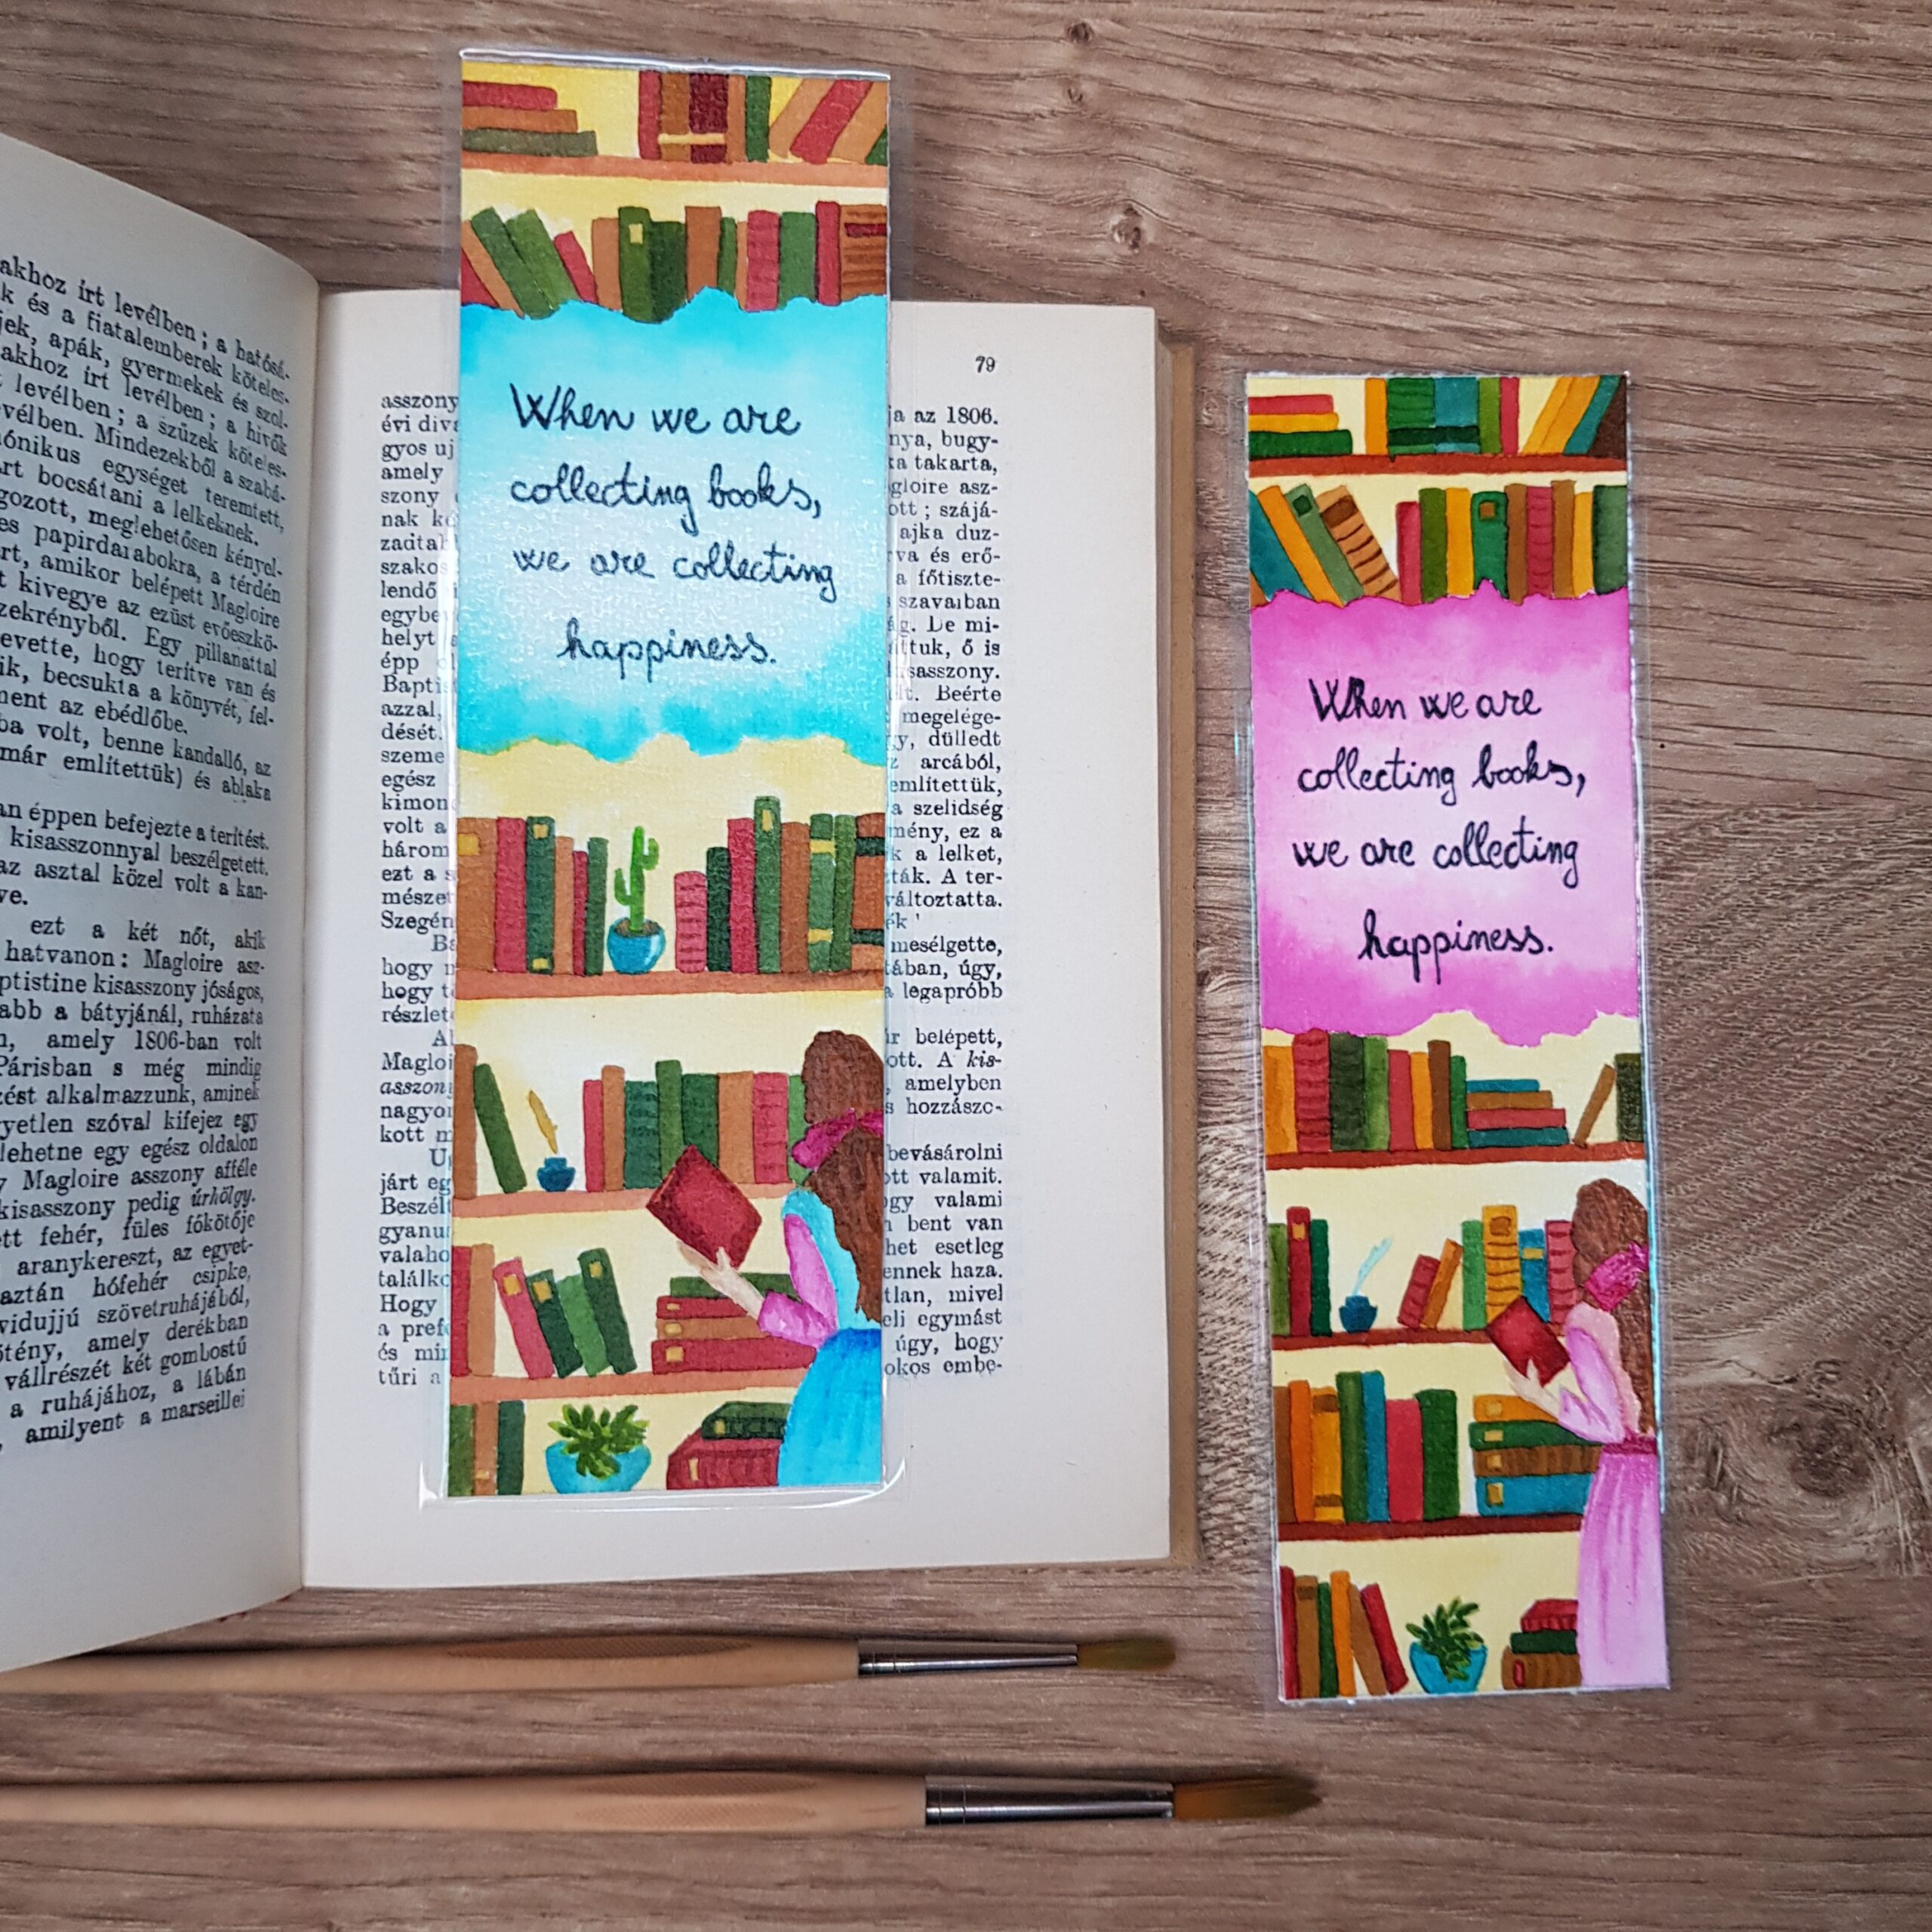 akhoz írt levélben ; a hatósá-
k és a fiatalemberek köteles-
jek, apák, gyermekek és szol-
akhoz írt levélben ; a hivők
levélben ; a szüzek köteles-
évélben. Mindezekből a szabá-
ónikus egységet teremtett,
rt bocsátani a lelkeknek.
gozott, meglehetősen kényel-
es papirdarabokra, a térdén
rt, amikor belépett Magloire
t kivegye az ezüst evőeszkö-
zekrényből. Egy pillanattal
evette, hogy terítve van és
ik, becsukta a könyvét, fel-
ment az ebédlőbe.
ba volt, benne kandalló, az
már említettük) és ablaka
an éppen befejezte a terítést.
kisasszonnyal beszélgetett.
az asztal közel volt a kan-
ve.
ezt a két nőt, akik
hatvanon : Magloire asz-
ptistine kisasszony jóságos,
abb a bátyjánál, ruházata
n, amely 1806-ban volt
Párisban s még mindig
zést alkalmazzunk, aminek
gyetlen szóval kifejez egy
lehetne egy egész oldalon
y Magloire asszony afféle
kisasszony pedig úrhölgy.
ett fehér, füles főkötője
aranykereszt, az egyet-
aztán hófehér csipke,
vidujjú szövetruhájából,
ötény, amely derékban
vállrészét két gombostű
a ruhájához, a lábán
, amilyent a marseillei
79
asszony ja az 1806.
évi diva nya, bugy-
gyos uj ka takarta,
amely gloire asz-
szony ott ; szájá-
nak kö ajka duz-
zadtak rva és erő-
szakos a főtiszte-
lendő szavaiban
egybe g. De mi-
helyt ttuk, ő is
épp sasszony.
Baptis lt. Beérte
azzal, megelége-
dését. y, dülledt
szeme z arcából,
egész említettük,
kimon a szelidség
volt a mény, ez a
három k a lelket,
ezt a s ták. A ter-
mészet változtatta.
Szegén ék !
Ba mesélgette,
hogy tában, úgy,
hogy t a legapróbb
részlet
A ár belépett,
Magloi ott. A kis-
asszony , amelyben
nagyon s hozzászo-
kott m
U bevásárolni
járt eg ott valamit.
Beszélt ogy valami
gyanu n bent van
valaho het esetleg
találko ennek haza.
Hogy tlan, mivel
a pref eli egymást
és min úgy, hogy
tűri a okos embe-
When we are
collecting books,
we are collecting
happiness.
When we are
collecting books,
we are collecting
happiness.